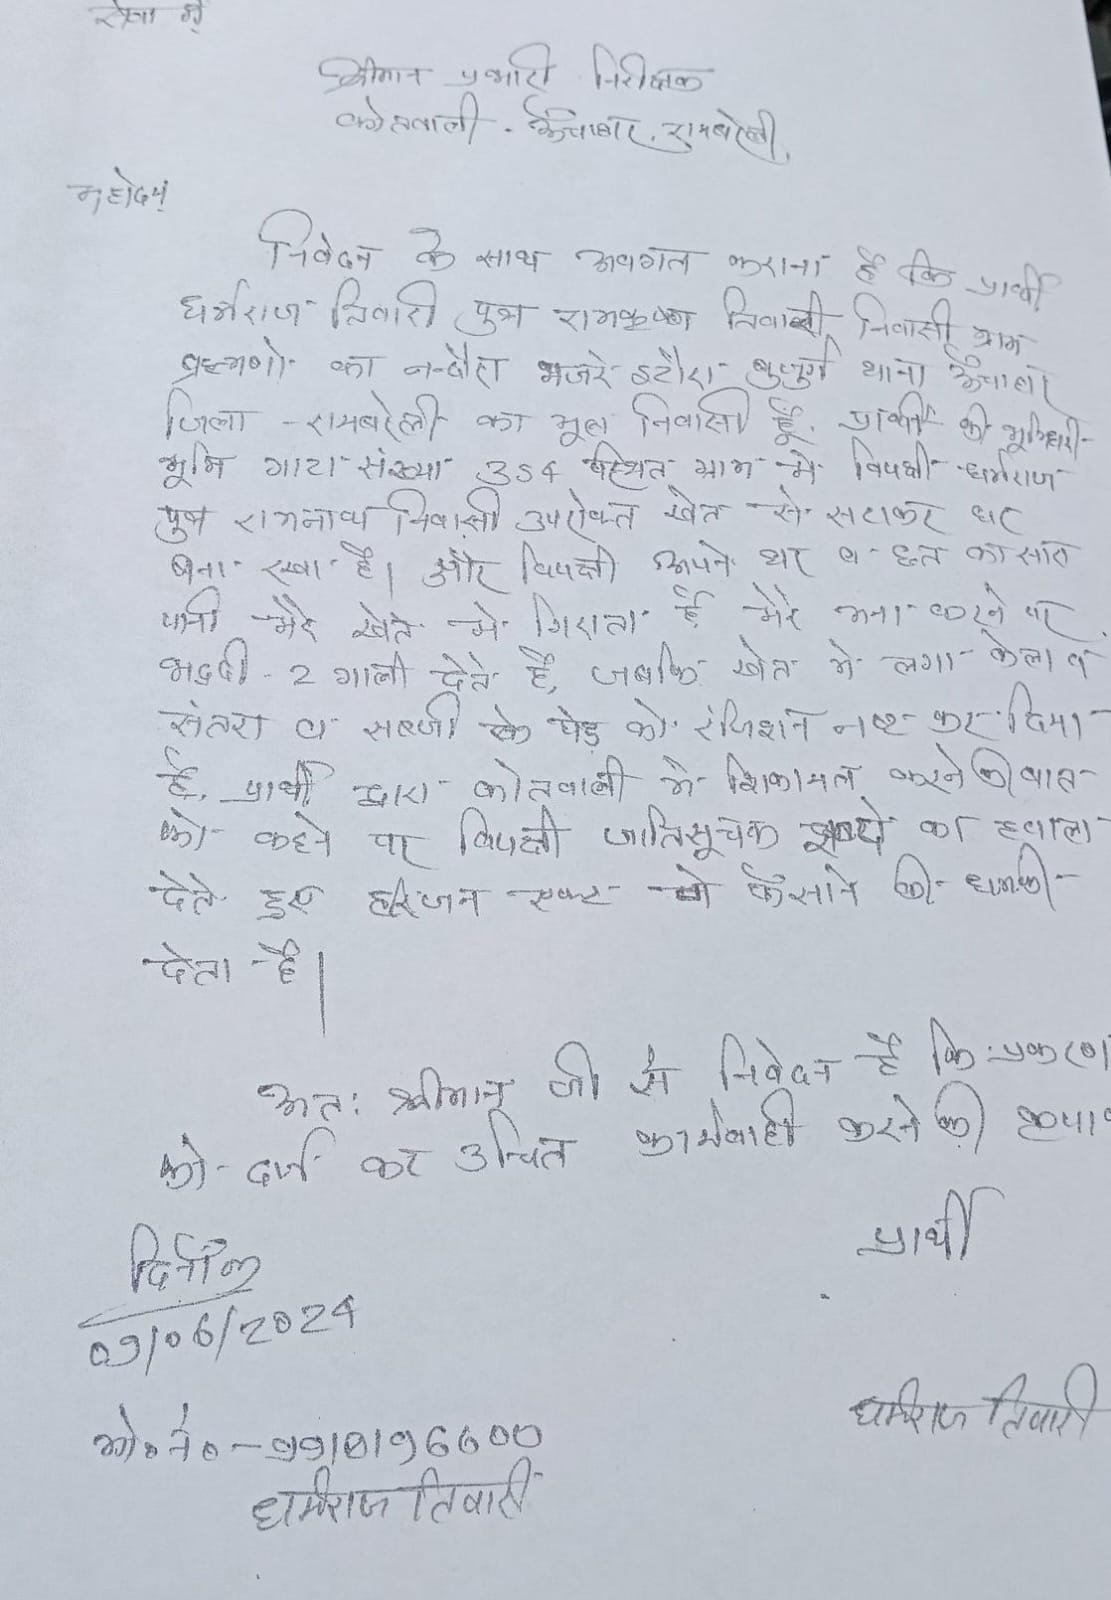 सेवा में
श्रीमान प्रभारी निरीक्षक
कोतवाली. ऊँचाहार, रायबरेली,
महोदय,
निवेदन के साथ अवगत कराना है कि प्रार्थी
धर्मराज तिवारी पुत्र रामकृष्ण तिवारी, निवासी ग्राम
का मजरे इटौरा बुजुर्ग थाना ऊँचाहार
जिला - रायबरेली का मूल निवासी हूँ. प्रार्थी की भूमिधरी
भूमि गाटा संख्या 354 स्थित ग्राम मे विपक्षी धर्मराज
पुत्र रामनाथ निवासी उपरोक्त खेत से सटाकर घर
बना रखा है। और विपक्षी अपने घर व छत का सारा
पानी मेरे खेत मे गिराता है मेरे मना करने पर
भद्दी - 2 गाली देते है, जबकि खेत मे लगा केला व
संतरा व सब्जी के पेड़ को रंजिशन नष्ट कर दिया
है, प्रार्थी द्वारा कोतवाली मे शिकायत करने की बात
को कहने पर विपक्षी जातिसूचक शब्दो का हवाला
देते हुए हरिजन एक्ट मे फँसाने की धमकी
देता है।
अतः श्रीमान जी से निवेदन है कि प्रकरण
को दर्ज कर उचित कार्यवाही करने की कृपा
प्रार्थी
दिनाँक
09/06/2024
धर्मराज तिवारी
मो०नं० - 9918196600
धर्मराज तिवारी